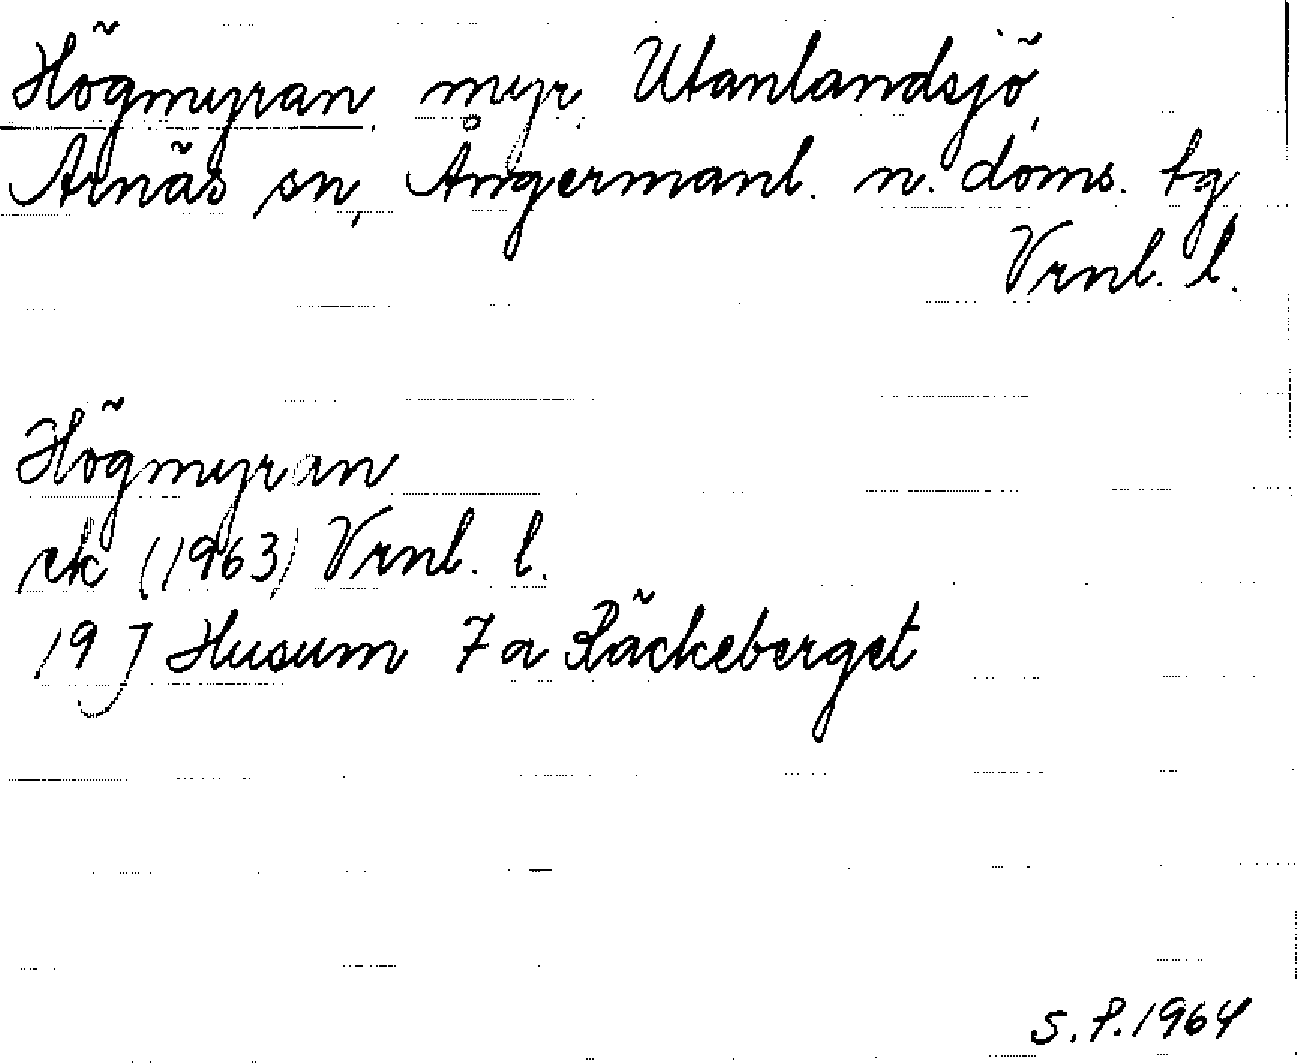 Högmyran, myr, Utanlandsjö,
Arnäs sn, Ångermanl. n. doms. tg
Vrnl. l.
Högmyran
ek (1963) Vrnl. l.
19 J Husum 7 a Räckeberget
S.P. 1964